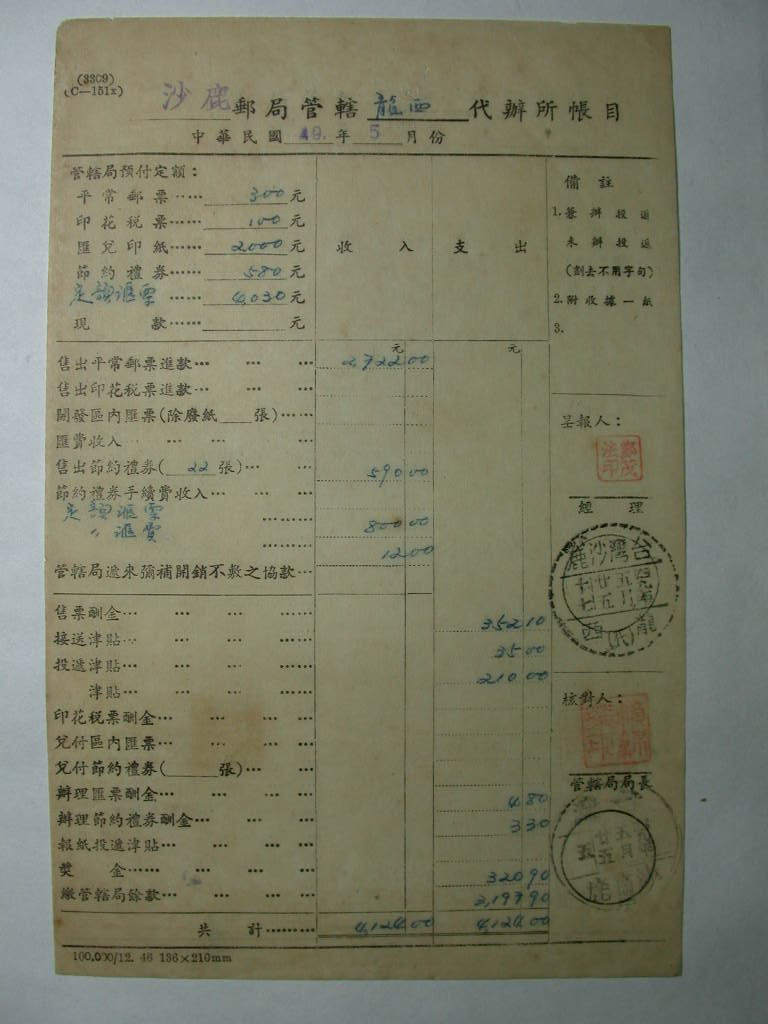 (3309)
(C—151x)
沙鹿郵局管轄龍西代辦所帳目
中華民國49.年5月份
管轄局預付定額：
平常郵票……300元
印花税票……100元
匯兌印紙……2000元
節約禮券……580元
定額滙票……4,030元
現款……元
收入 支出
備註
1. 兼辦投遞
未辦投遞
(劃去不用字句)
2. 附收據一紙
3.
元 元
售出平常郵票進款… … … 2,722 00
售出印花税票進款… … …
開發區內匯票(除廢紙___張)……
匯費收入… … … …
售出節約禮券(22張)… … 590 00
節約禮券手續費收入… … …
定額滙票 ……… 800 00
〃 滙費 ……… 12 00
管轄局遞來彌補開銷不敷之協款…
售票酬金… … … …… 352 10
接送津貼… … … …… 35 00
投遞津貼… … … …… 210 00
津貼… … … ……
印花税票酬金… … … …
兌付區內匯票… … … …
兌付節約禮券(___張)… …
辦理匯票酬金… … … … 4 80
辦理節約禮券酬金… … … 3 30
報紙投遞津貼… … … …
獎金…… … … … 320 90
繳管轄局餘款… … … … 3,197 90
共計……… 4,124 00 4,124 00
呈報人：
經理
台灣沙鹿
龍西(代)
核對人：
管轄局局長
100,000/12. 46 136×210mm